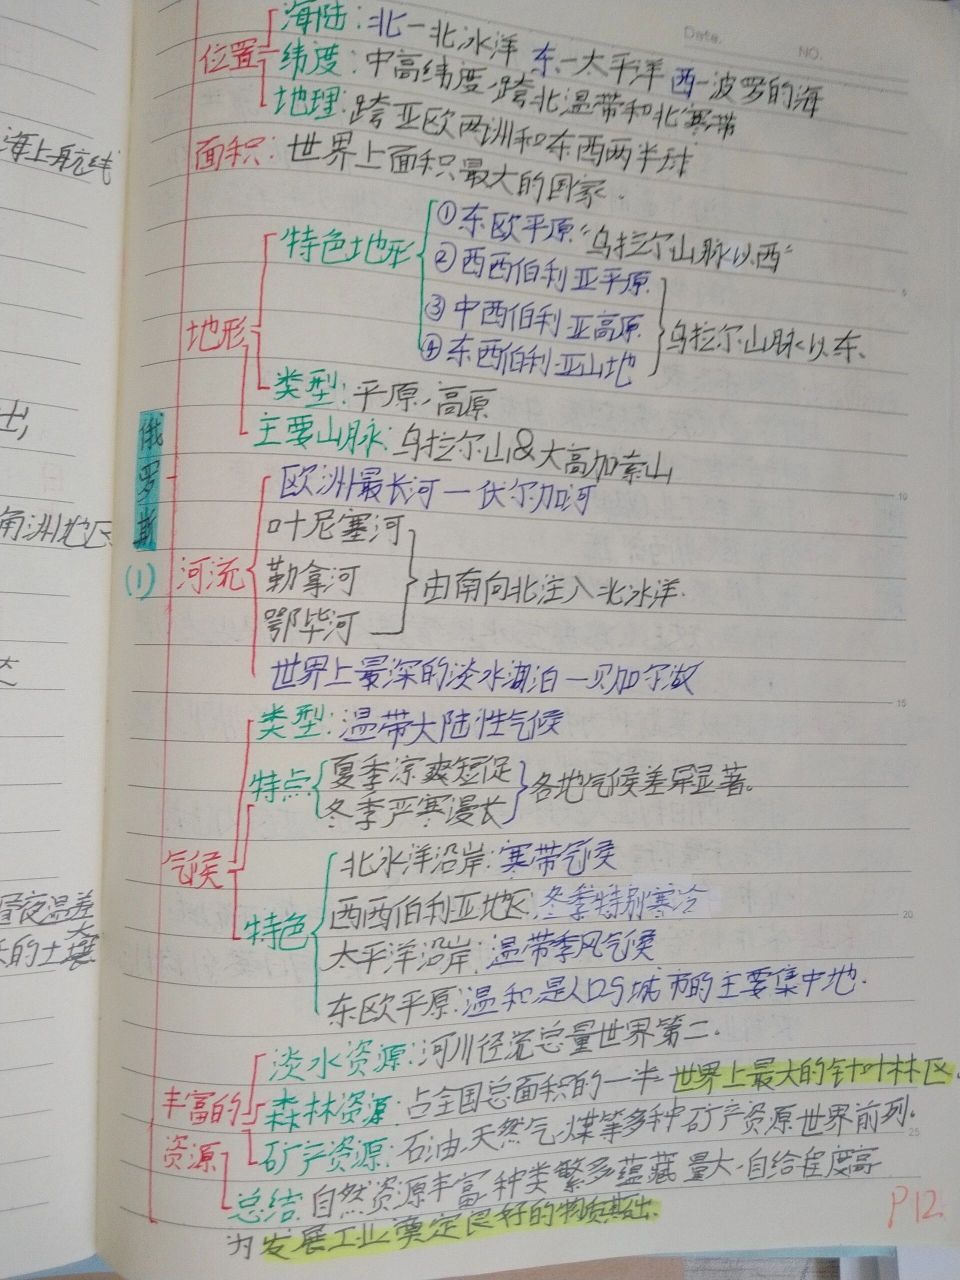 Date.
NO.
海陆：北—北冰洋 东—太平洋 西—波罗的海
位置
纬度：中高纬度,跨北温带和北寒带
地理：跨亚欧两洲和东西两半球
海上航线
面积：世界上面积最大的国家.
特色地形
①东欧平原“乌拉尔山脉以西”
②西西伯利亚平原
③中西伯利亚高原
④东西伯利亚山地
乌拉尔山脉以东、
地形
类型：平原、高原
主要山脉：乌拉尔山&大高加索山
俄罗斯
(1)
角洲地区
欧洲最长河—伏尔加河
叶尼塞河
河流
勒拿河
由南向北注入北冰洋.
鄂毕河
世界上最深的淡水湖泊—贝加尔湖
类型：温带大陆性气候
特点
夏季凉爽短促
冬季严寒漫长
各地气候差异显著。
气候
北冰洋沿岸：寒带气候
西西伯利亚地区：冬季特别寒冷
特色
太平洋沿岸：温带季风气候
东欧平原：温和是人口与城市的主要集中地.
昼夜温差大
的土壤
淡水资源：河川径流总量世界第二.
丰富的
森林资源：占全国总面积的一半 世界上最大的针叶林区
资源
矿产资源：石油、天然气、煤等多种矿产资源世界前列.
总结：自然资源丰富,种类繁多蕴藏量大、自给程度高
为发展工业奠定良好的物质基础.
P12.
5
10
15
20
25